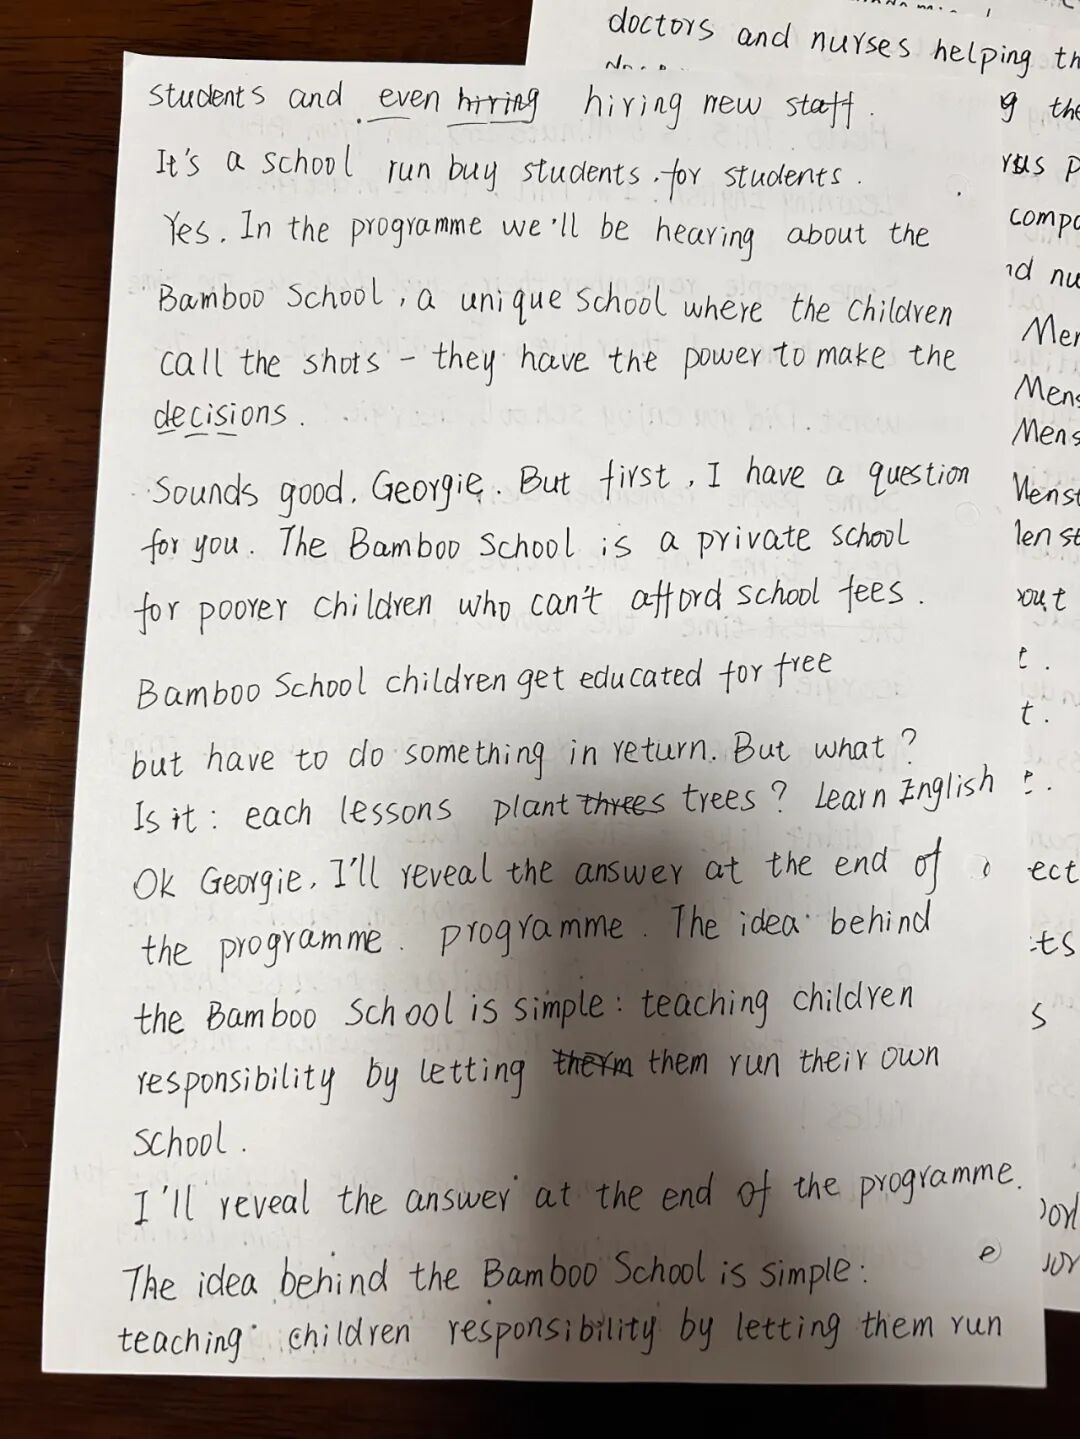 doctors and nurses helping
students and even hiring hiring new staff.
It's a school run buy students. for students.
Yes. In the programme we'll be hearing about the
Bamboo School, a unique school where the children
call the shots - they have the power to make the
decisions.
Sounds good. Georgie. But first, I have a question
for you. The Bamboo School is a private school
for poorer children who can't afford school fees.
Bamboo School children get educated for free
but have to do something in return. But what?
Is it: each lessons plant threes trees? Learn English
Ok Georgie, I'll reveal the answer at the end of
the programme. programme. The idea behind
the Bamboo School is simple: teaching children
responsibility by letting therm them run their own
school.
I'll reveal the answer at the end of the programme.
The idea behind the Bamboo School is simple:
teaching children responsibility by letting them run